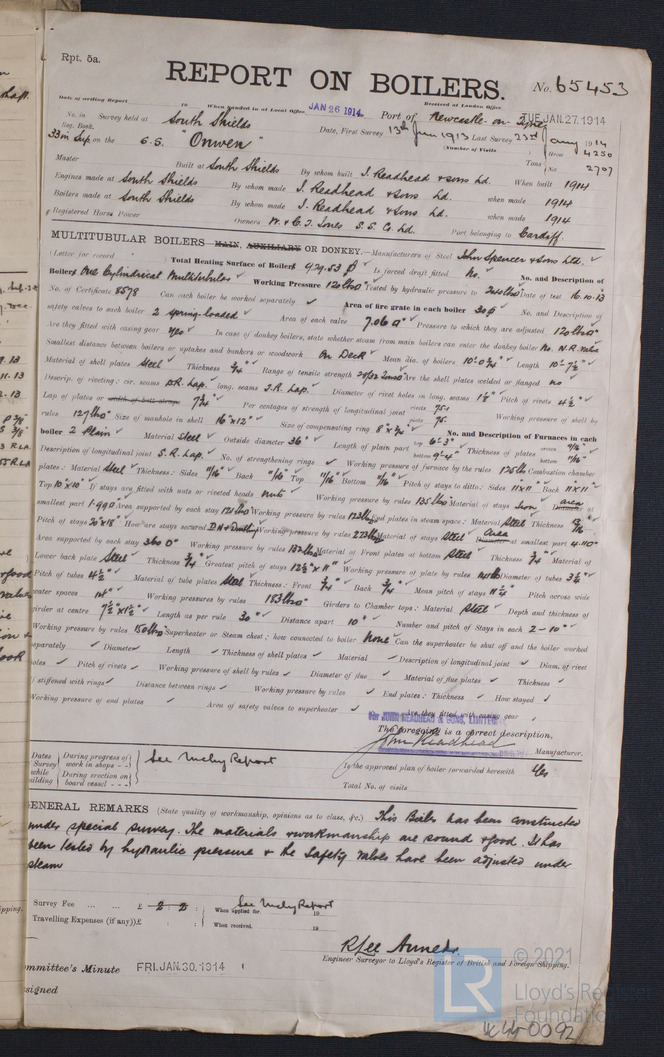 Rpt. 5a.
REPORT ON BOILERS.
No. 65453
Date of writing Report 19 When handed in at Local Office JAN 26 1914 Received at London Office
Port of Newcastle-on-Tyne TUE. JAN. 27. 1914
No. in Reg. Book. Survey held at South Shields Date, First Survey 13th June 1913 Last Survey 23rd Jany 1914
33 in Sup on the S.S. "Onwen" (Number of Visits Gross 4250
Tons Net 2707
Master Built at South Shields By whom built J. Readhead & Sons Ld. When built 1914
Engines made at South Shields By whom made J. Readhead & Sons Ld. when made 1914
Boilers made at South Shields By whom made J. Readhead & Sons Ld. when made 1914
Registered Horse Power Owners W. & C. T. Jones S.S. Co. Ld. Port belonging to Cardiff.
MULTITUBULAR BOILERS MAIN, AUXILIARY OR DONKEY.—Manufacturers of Steel John Spencer & Sons Ltd.
(Letter for record ) Total Heating Surface of Boilers 929.53 Is forced draft fitted No. No. and Description of
Boilers One Cylindrical Multitubular Working Pressure 120 lbs Tested by hydraulic pressure to 240 lbs Date of test 16.10.13
No. of Certificate 8578 Can each boiler be worked separately ✓ Area of fire grate in each boiler 30 No. and Description of
safety valves to each boiler 2 spring-loaded Area of each valve 7.06 Pressure to which they are adjusted 120 lbs
Are they fitted with easing gear yes In case of donkey boilers, state whether steam from main boilers can enter the donkey boiler No.
Smallest distance between boilers or uptakes and bunkers or woodwork On Deck Mean dia. of boilers 10'-0¾" Length 10'-7½"
Material of shell plates Steel Thickness ¾" Range of tensile strength Are the shell plates welded or flanged no
Descrip. of riveting: cir. seams D.R. Lap. long. seams T.R. Lap. Diameter of rivet holes in long. seams 1⅛" Pitch of rivets 4½"
Lap of plates or width of butt straps 7¼" Per centages of strength of longitudinal joint rivets 75. plate 75. Working pressure of shell by
rules 127 lbs Size of manhole in shell 16"x12" Size of compensating ring 8"x¾" No. and Description of Furnaces in each
boiler 2 Plain Material Steel Outside diameter 36" Length of plain part top 6'-3" bottom 9'-4" Thickness of plates crown 11/16" bottom 11/16"
Description of longitudinal joint S.R. Lap. No. of strengthening rings ✓ Working pressure of furnace by the rules 125 lbs Combustion chamber
plates: Material Steel Thickness: Sides 11/16" Back 11/16" Top 11/16" Bottom 11/16" Pitch of stays to ditto: Sides 11"x11" Back 11"x11"
Top 10"x10" If stays are fitted with nuts or riveted heads nuts Working pressure by rules 135 lbs Material of stays Iron area Diameter at
smallest part 1.99 Area supported by each stay 121 Working pressure by rules 123 lbs End plates in steam space: Material Steel Thickness
Pitch of stays 20"x18" How are stays secured Working pressure by rules 223 lbs Material of stays Steel Area Diameter at smallest part
Area supported by each stay 360 Working pressure by rules Material of Front plates at bottom Steel Thickness ¾" Material of
Lower back plate Steel Thickness ¾" Greatest pitch of stays 12½"x11" Working pressure of plate by rules Diameter of tubes 3¼"
Pitch of tubes 4½" Material of tube plates Steel Thickness: Front ¾" Back ¾" Mean pitch of stays 11¼" Pitch across wide
water spaces 14" Working pressures by rules 183 lbs Girders to Chamber tops: Material Steel Depth and thickness of
girder at centre 7½"x1½" Length as per rule 30" Distance apart 10" Number and pitch of Stays in each 2-10"
Working pressure by rules 150 lbs Superheater or Steam chest; how connected to boiler None Can the superheater be shut off and the boiler worked
separately ✓ Diameter ✓ Length ✓ Thickness of shell plates ✓ Material ✓ Description of longitudinal joint ✓ Diam. of rivet
holes ✓ Pitch of rivets ✓ Working pressure of shell by rules ✓ Diameter of flue ✓ Material of flue plates ✓ Thickness ✓
If stiffened with rings ✓ Distance between rings ✓ Working pressure by rules ✓ End plates: Thickness ✓ How stayed ✓
Working pressure of end plates ✓ Area of safety valves to superheater ✓ Are they fitted with easing gear ✓
For JOHN READHEAD & SONS, LIMITED.
The foregoing is a correct description,
John Readhead Manufacturer.
Dates of Survey while building During progress of work in shops - - See Mchy Report Is the approved plan of boiler forwarded herewith Yes
During erection on board vessel - - - Total No. of visits
GENERAL REMARKS (State quality of workmanship, opinions as to class, &c.) This Boiler has been constructed
under special survey. The materials & workmanship are sound & good. It has
been tested by hydraulic pressure & the Safety valves have been adjusted under
steam
Survey Fee ... ... £ 2 2 : When applied for. See Mchy Report 19
Travelling Expenses (if any) £ : : When received. 19
Engineer Surveyor to Lloyd's Register of British and Foreign Shipping.
Committee's Minute FRI. JAN. 30. 1914
Assigned
© 2021
LR Lloyd's Register
Foundation
0092